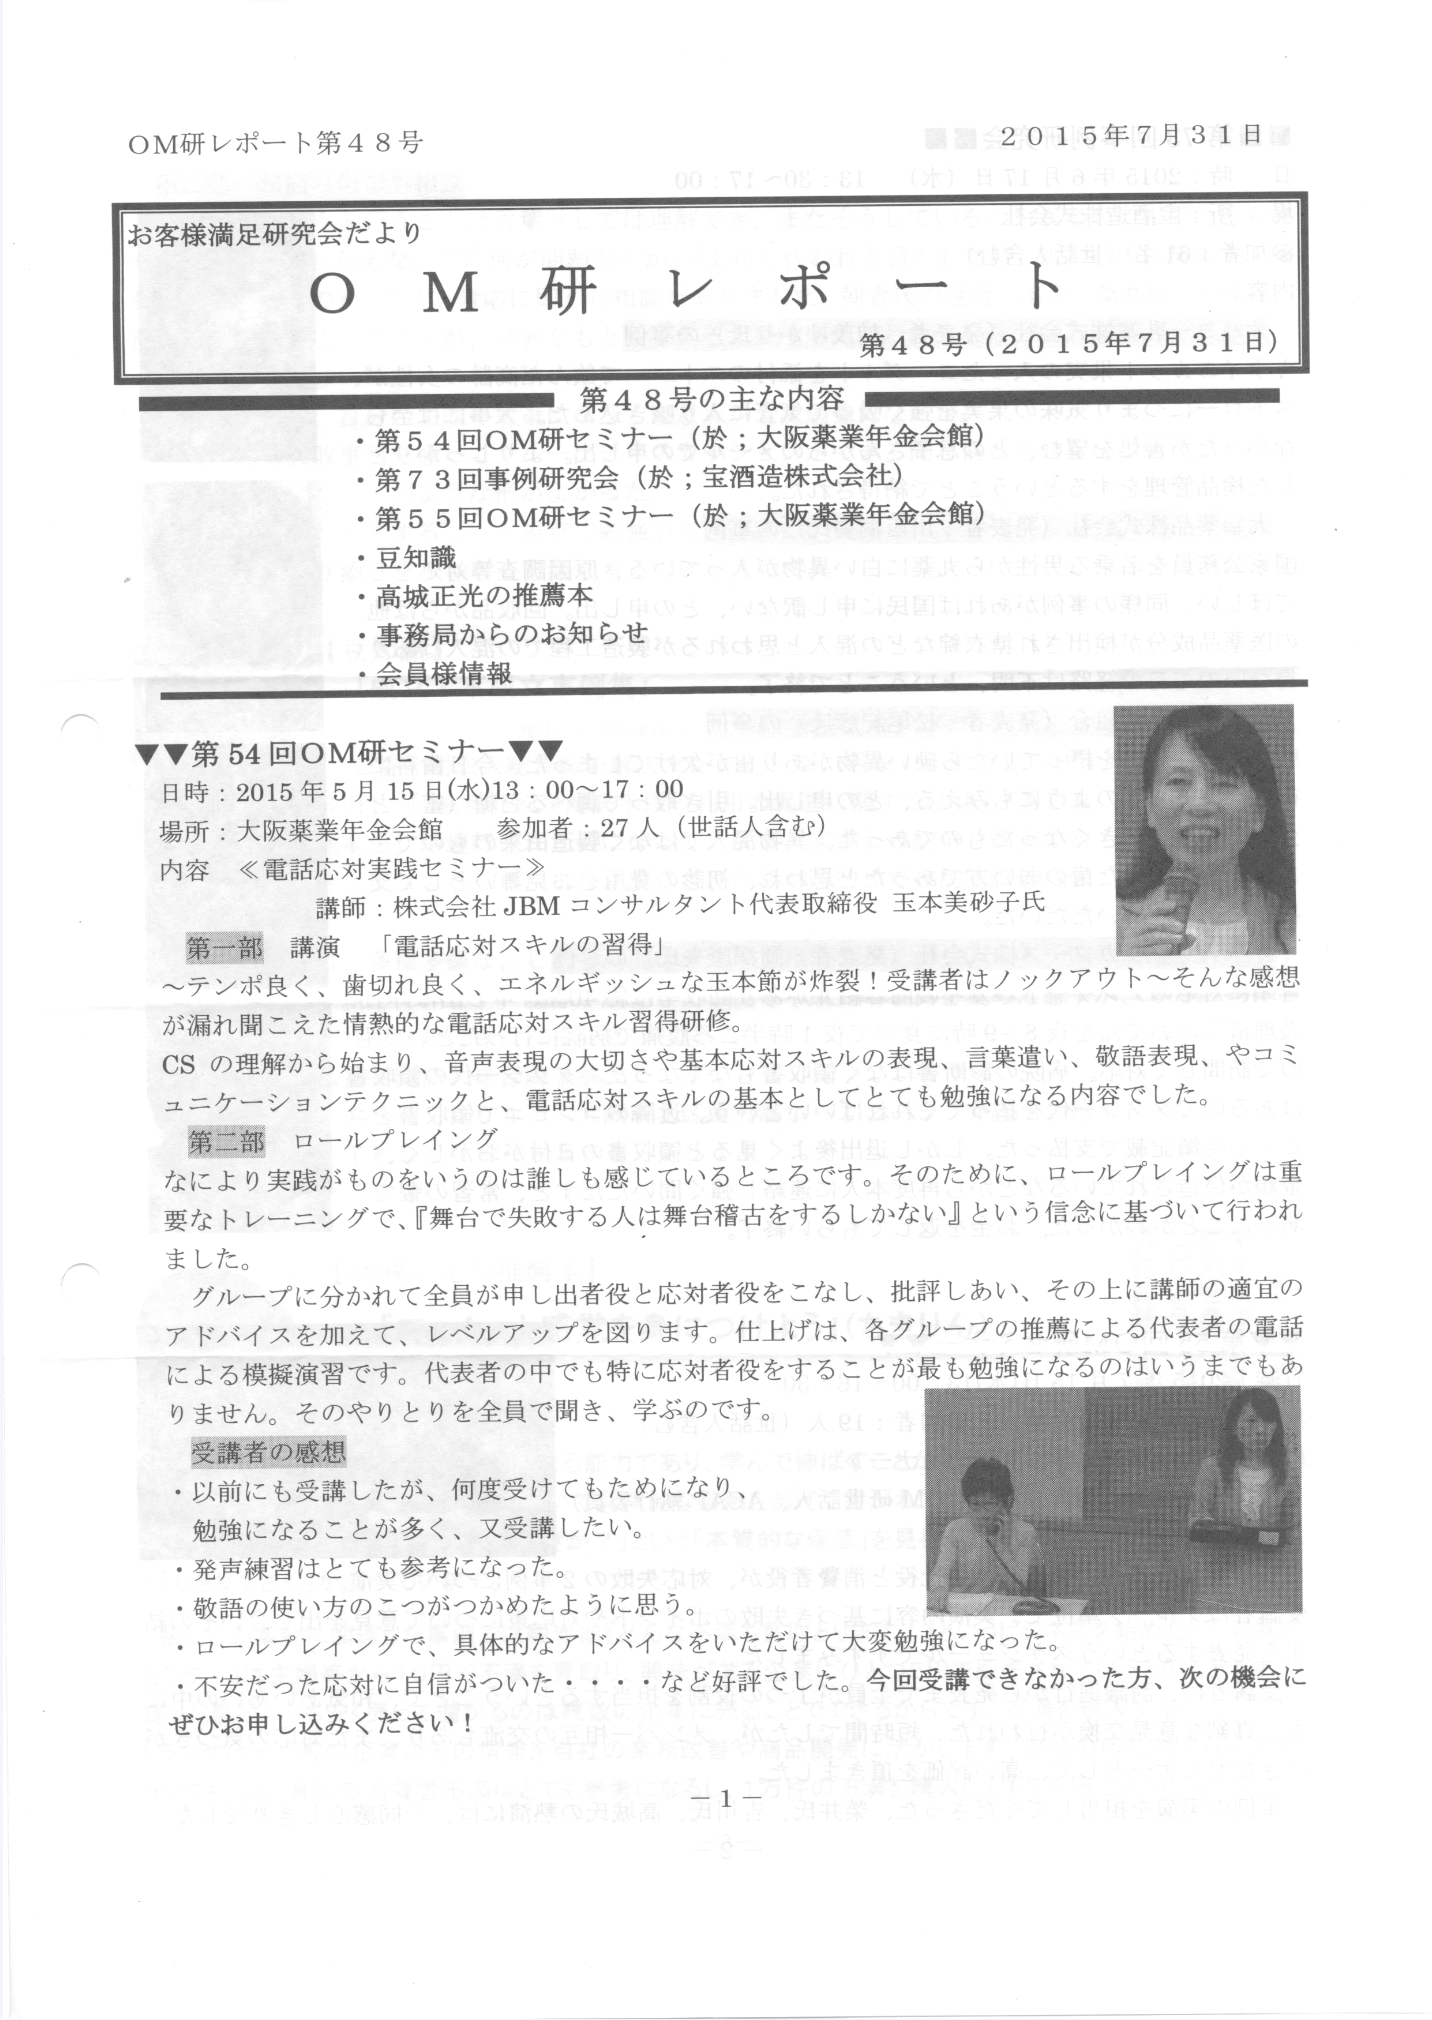 OM研レポート第４８号
２０１５年７月３１日
お客様満足研究会だより
ＯＭ研レポート
第４８号（２０１５年７月３１日）
第４８号の主な内容
・第５４回OM研セミナー（於；大阪薬業年金会館）
・第７３回事例研究会（於；宝酒造株式会社）
・第５５回OM研セミナー（於；大阪薬業年金会館）
・豆知識
・高城正光の推薦本
・事務局からのお知らせ
・会員様情報
▼▼第 54 回OM研セミナー▼▼
日時：2015 年 5 月 15 日(水)13：00～17：00
場所：大阪薬業年金会館　　参加者：27 人（世話人含む）
内容　≪電話応対実践セミナー≫
講師：株式会社 JBM コンサルタント代表取締役 玉本美砂子氏
第一部　講演　「電話応対スキルの習得」
～テンポ良く、歯切れ良く、エネルギッシュな玉本節が炸裂！受講者はノックアウト～そんな感想
が漏れ聞こえた情熱的な電話応対スキル習得研修。
CS の理解から始まり、音声表現の大切さや基本応対スキルの表現、言葉遣い、敬語表現、やコミ
ュニケーションテクニックと、電話応対スキルの基本としてとても勉強になる内容でした。
第二部　ロールプレイング
なにより実践がものをいうのは誰しも感じているところです。そのために、ロールプレイングは重
要なトレーニングで、『舞台で失敗する人は舞台稽古をするしかない』という信念に基づいて行われ
ました。
グループに分かれて全員が申し出者役と応対者役をこなし、批評しあい、その上に講師の適宜の
アドバイスを加えて、レベルアップを図ります。仕上げは、各グループの推薦による代表者の電話
による模擬演習です。代表者の中でも特に応対者役をすることが最も勉強になるのはいうまでもあ
りません。そのやりとりを全員で聞き、学ぶのです。
受講者の感想
・以前にも受講したが、何度受けてもためになり、
勉強になることが多く、又受講したい。
・発声練習はとても参考になった。
・敬語の使い方のこつがつかめたように思う。
・ロールプレイングで、具体的なアドバイスをいただけて大変勉強になった。
・不安だった応対に自信がついた・・・・など好評でした。今回受講できなかった方、次の機会に
ぜひお申し込みください！
－1－